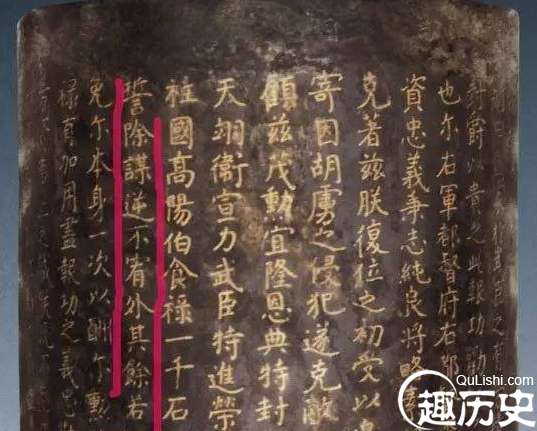 封爵以貴之此報功勸
也尔右軍都督府右都
資忠義秉志純良將略
克著兹朕復位之初受以
寄因胡虜之侵犯遂克敵
顧兹茂勳宜隆恩典特封
天翊衛宣力武臣特進榮
柱國高陽伯食禄一千石
誓除謀逆不宥外其餘若
免尔本身一次以酬尔勲
加用盡報功之義
QuLishi.com
趣历史